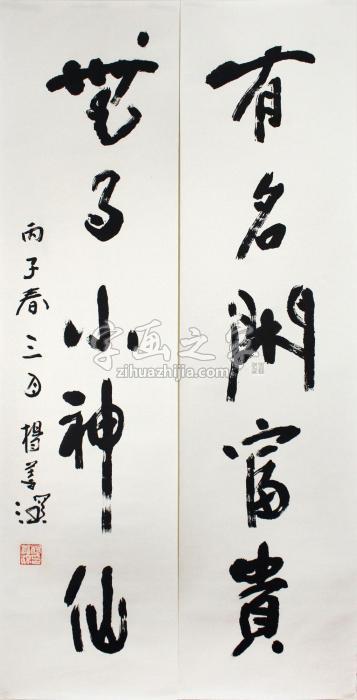 有名閑富貴
無事小神仙
丙子春三月楊善深
字画之家
zihuazhijia.com